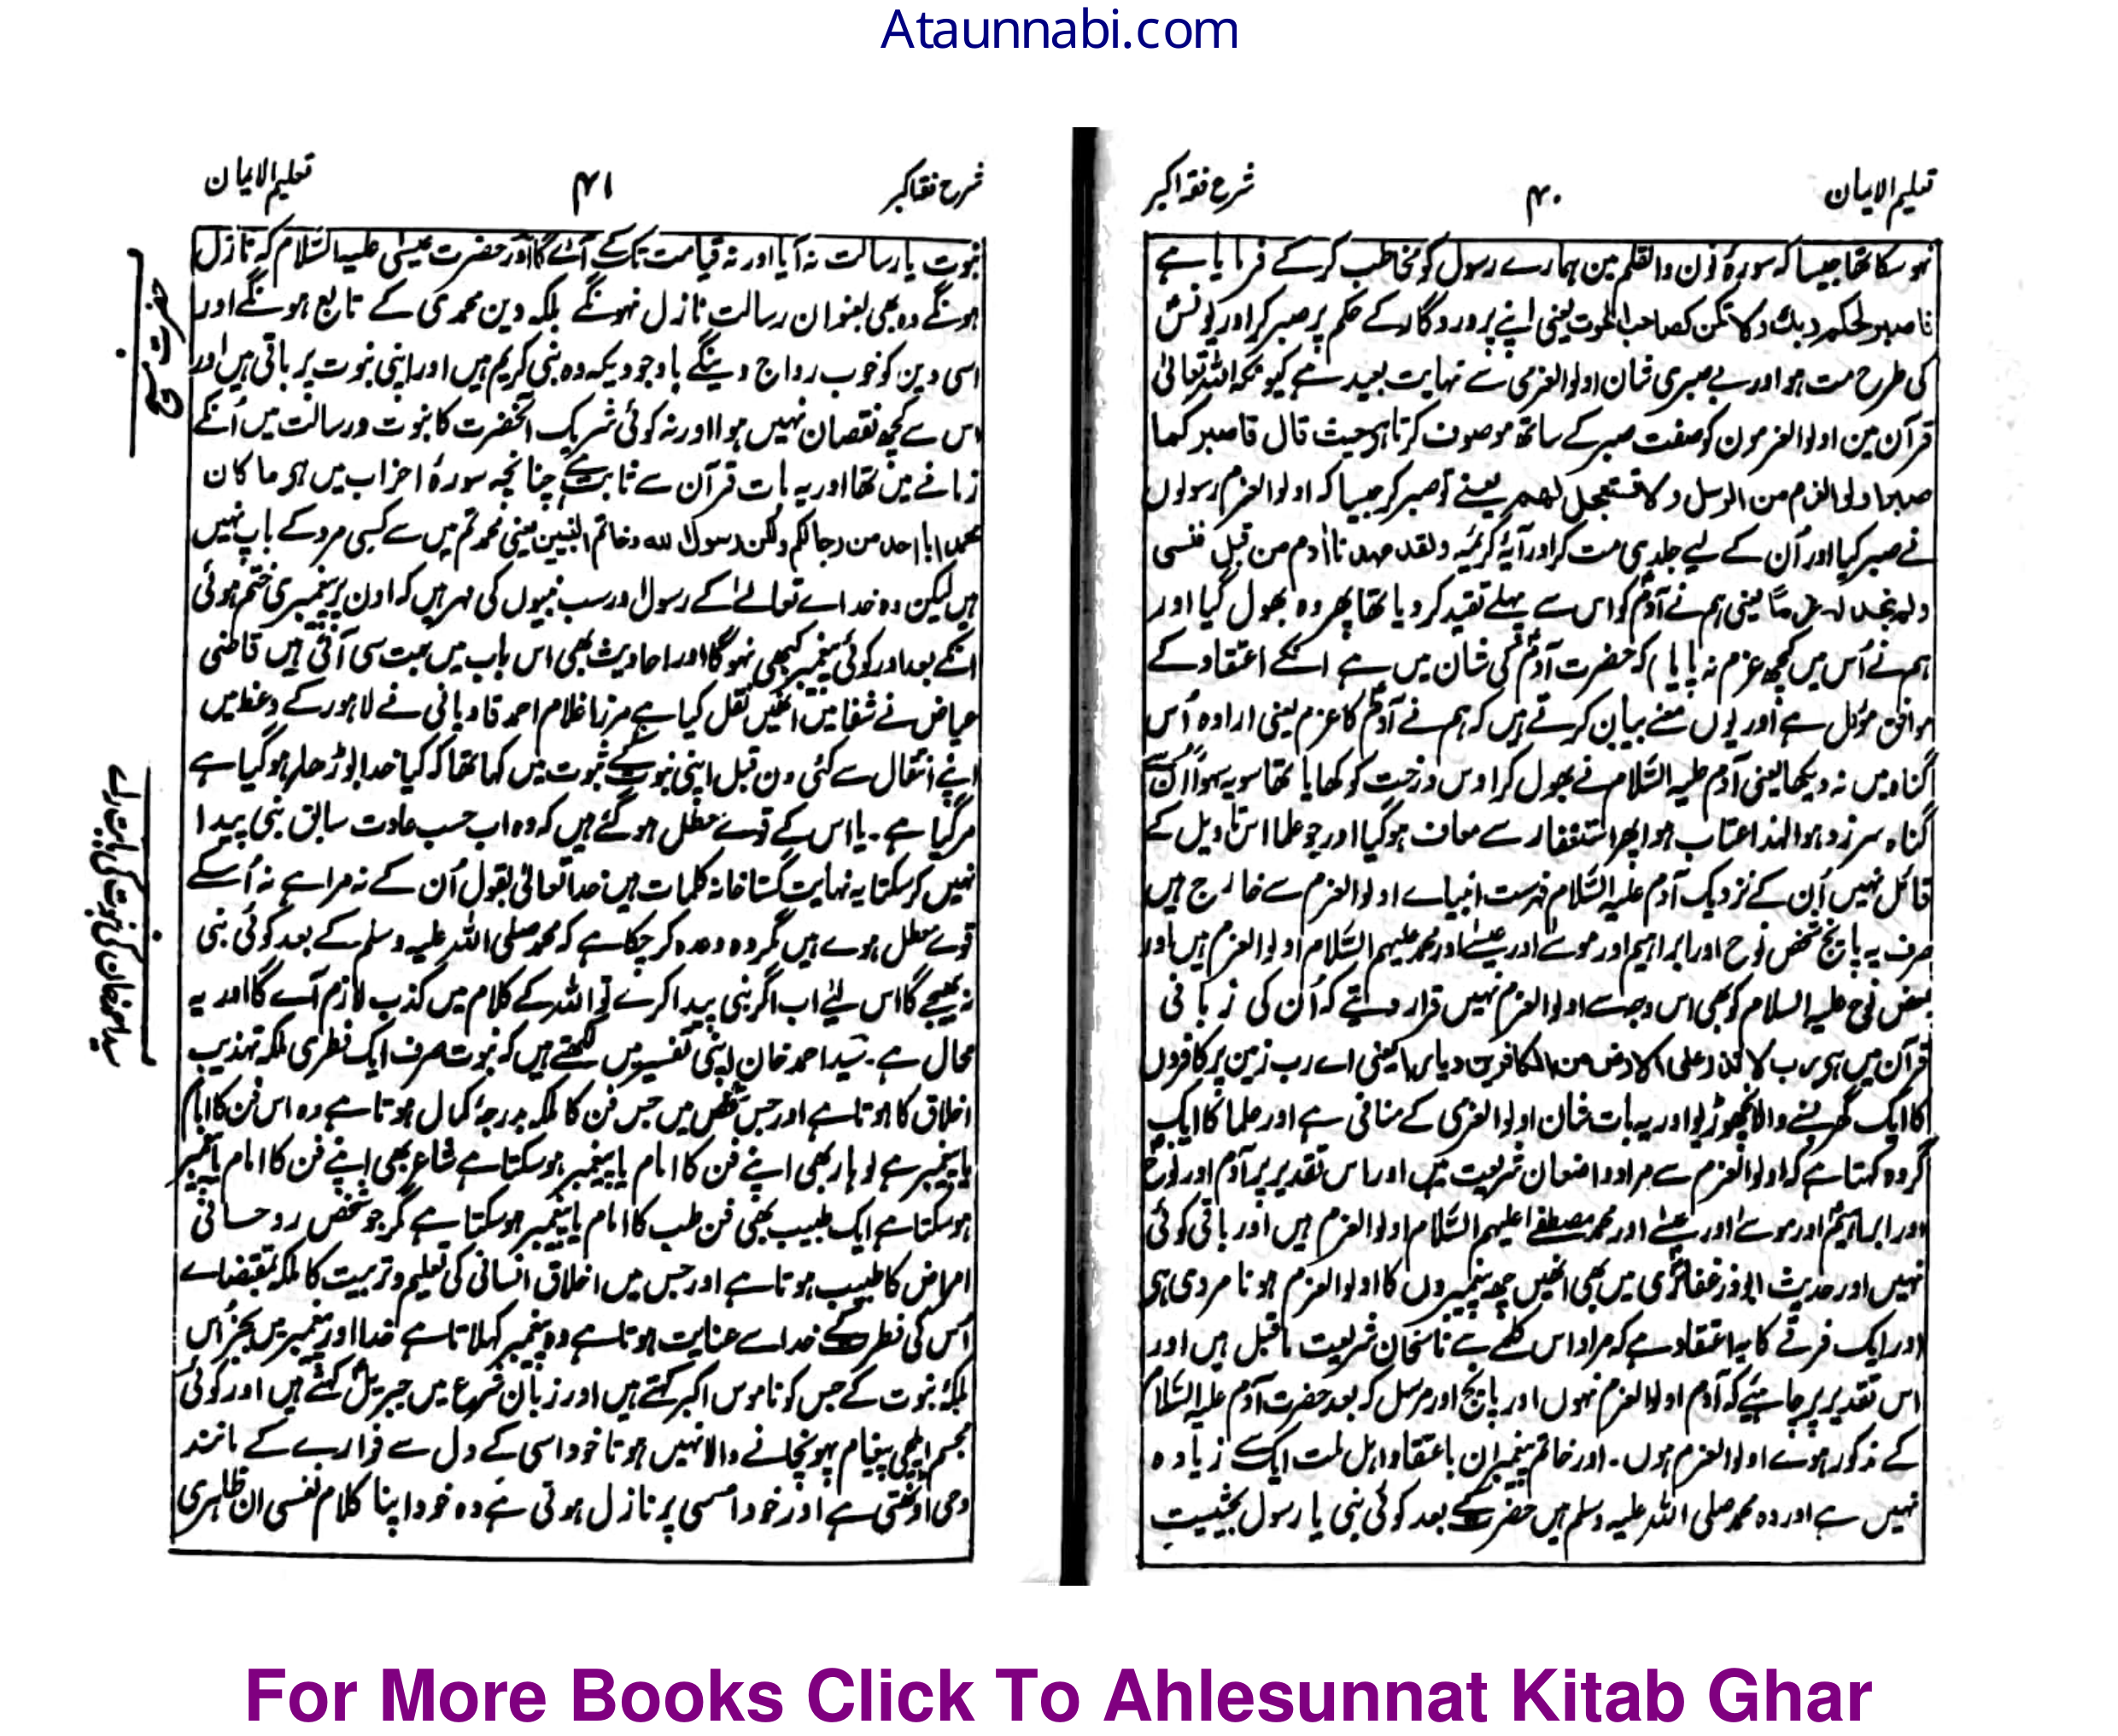 Ataunnabi.com
تعلیم الایمان ۴۰ شرح فقہ اکبر
نہوسکا تھا جیسا کہ سورۂ نون والقلم مین ہمارے رسول کو مخاطب کرکے فرمایا ہے
فاصبر لحکم ربک ولا تکن کصاحب الحوت یعنی اپنے پروردگار کے حکم پر صبر کر اور یونسؑ
کی طرح مت ہو اور بے صبری شان اولوالعزمی سے نہایت بعید ہے کیونکہ اللہ تعالیٰ
قرآن مین اولوالعزمون کو صفت صبر کے ساتھ موصوف کرتا ہے حیث قال فاصبر کما
صبر اولوالعزم من الرسل ولا تستعجل لهم یعنے تو صبر کر جیسا کہ اولوالعزم رسولوں
نے صبر کیا اور اُن کے لیے جلدی مت کر اور آیۂ کریمہ ولقد عهدنا اٰدم من قبل فنسی
ولم نجد له عزمًا یعنی ہم نے آدمؑ کو اس سے پہلے تقید کر دیا تھا پھر وہ بھول گیا اور
ہم نے اُس میں کچھ عزم نہ پایا) کہ حضرت آدمؑ کی شان میں ہے انکے اعتقاد کے
موافق مؤل ہے اور یوں معنے بیان کرتے ہیں کہ ہم نے آدمؑ کا عزم یعنی ارادہ اُس
گناہ میں نہ دیکھا یعنی آدم علیہ السّلام نے بھول کر اوس درخت کو کھایا تھا سو یہ سہواً اُن سے
گناہ سرزد ہوا لہذا عتاب ہوا پھر استغفار سے معاف ہوگیا اور جو علما اس تاویل کے
قائل نہیں اُن کے نزدیک آدم علیہ السّلام فہرست انبیاے اولوالعزم سے خارج ہیں
صرف یہ پانچ شخص نوح اور ابراہیم اور موسےٰ اور عیسےٰ اور محمد علیہم السّلام اولوالعزم ہیں اور
بعض نوح علیہ السلام کو بھی اس وجہ سے اولوالعزم نہیں قرار دیتے کہ اُن کی زبانی
قرآن میں ہے رب لا تذر علی الارض من الکافرین دیارا یعنی اے رب زمین پر کافروں
کا ایک گھر بسنے والا نچھوڑیو اور یہ بات شان اولوالعزمی کے منافی ہے اور علما کا ایک
گروہ کہتا ہے کہ اولوالعزم سے مراد واضعان شریعت ہیں اور اس تقدیر پر آدم اور نوحؑ
اور ابراہیمؑ اور موسےٰ اور عیسےٰ اور محمد مصطفےٰ علیہم السّلام اولوالعزم ہیں اور باقی کوئی
نہیں اور حدیث ابوذر غفاریؓ میں بھی انھیں چھ پیغمبروں کا اولوالعزم ہونا مروی ہے
اور ایک فرقے کا یہ اعتقاد ہے کہ مراد اس کلمے سے ناسخان شریعت ماقبل ہیں اور
اس تقدیر پر چاہیئے کہ آدم اولوالعزم نہوں اور پانچ اور مرسل کہ بعد حضرت آدم علیہ السّلام
کے مذکور ہوے اولوالعزم ہوں۔ اور خاتم پیغمبران باعتقاد اہل ملت ایک سے زیادہ
نہیں ہے اور وہ محمد صلی اللہ علیہ وسلم ہیں حضرت کے بعد کوئی نبی یا رسول بحیثیت
شرح فقہ اکبر ۴۱ تعلیم الایمان
نبوت یا رسالت نہ آیا اور نہ قیامت تک آئے گا اور حضرت عیسیٰ علیہ السّلام کہ نازل
ہونگے وہ بھی بعنوان رسالت نازل نہونگے بلکہ دین محمدی کے تابع ہونگے اور
اسی دین کو خوب رواج دینگے باوجودیکہ وہ نبی کریم ہیں اور اپنی نبوت پر باقی ہیں اور
اس سے کچھ نقصان نہیں ہوا اور نہ کوئی شریک آنحضرت کا نبوت ورسالت میں اُنکے
زمانے میں تھا اور یہ بات قرآن سے ثابت ہے چنانچہ سورۂ احزاب میں ہے ما کان
محمد ابا احد من رجالکم ولکن رسول الله وخاتم النبیین یعنی محمد تم میں سے کسی مرد کے باپ نہیں
ہیں لیکن وہ خداے تعالےٰ کے رسول اور سب نبیوں کی مہر ہیں کہ اون پر پیغمبری ختم ہوئی
انکے بعد اور کوئی پیغمبر کبھی نہوگا اور احادیث بھی اس باب میں بہت سی آئی ہیں قاضی
عیاض نے شفا میں انھیں نقل کیا ہے مرزا غلام احمد قادیانی نے لاہور کے وعظ میں
اپنے انتقال سے کئی دن قبل اپنی نبوت کے ثبوت میں کہا تھا کہ کیا خدا لوڑ ھا ہو گیا ہے
مر گیا ہے۔ یا اس کے قوے معطل ہو گئے ہیں کہ وہ اب حسب عادت سابق نبی پیدا
نہیں کر سکتا یہ نہایت گستاخانہ کلمات ہیں خدا تعالیٰ بقول اُن کے نہ مرا ہے نہ اُسکے
قوے معطل ہوے ہیں مگر وہ وعدہ کر چکا ہے کہ محمد صلی اللہ علیہ وسلم کے بعد کوئی نبی
نہ بھیجے گا اس لئے اب اگر نبی پیدا کرے تو اللہ کے کلام میں کذب لازم آے گا اور یہ
محال ہے۔ سید احمد خان اپنی تفسیر میں لکھتے ہیں کہ نبوت صرف ایک فطری ملکہ تہذیب
اخلاق کا ہوتا ہے اور جس شخص میں جس فن کا ملکہ بدرجۂ کمال ہوتا ہے وہ اس فن کا امام
یا پیغمبر ہے لوہار بھی اپنے فن کا امام یا پیغمبر ہو سکتا ہے شاعر بھی اپنے فن کا امام یا پیغمبر
ہو سکتا ہے ایک طبیب بھی فن طب کا امام یا پیغمبر ہو سکتا ہے مگر جو شخص روحانی
امراض کا طبیب ہوتا ہے اور جس میں اخلاق انسانی کی تعلیم و تربیت کا ملکہ بمقتضاے
اُس کی فطرت کے خدا سے عنایت ہوتا ہے وہ پیغمبر کہلاتا ہے خدا اور پیغمبر میں بجز اُس
ملکۂ نبوت کے جس کو ناموس اکبر کہتے ہیں اور زبان شرع میں جبریل کہتے ہیں اور کوئی
مجسم ایلچی پیغام پہونچانے والا نہیں ہوتا خود اسی کے دل سے فوارے کے مانند
وحی اوٹھتی ہے اور خود اسی پر نازل ہوتی ہے وہ خود اپنا کلام نفسی ان ظاہری
حضرت مسیح
سید احمد خان کی نبوت کی بابت رائے
For More Books Click To Ahlesunnat Kitab Ghar